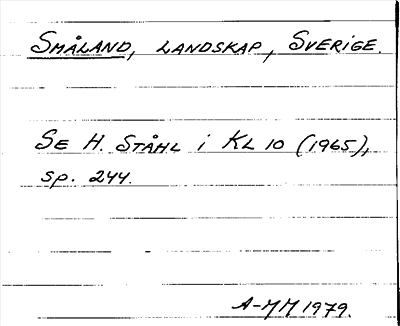 SMÅLAND, LANDSKAP, SVERIGE.
SE H. STÅHL i KL 10 (1965),
sp. 244.
A-MM 1979.